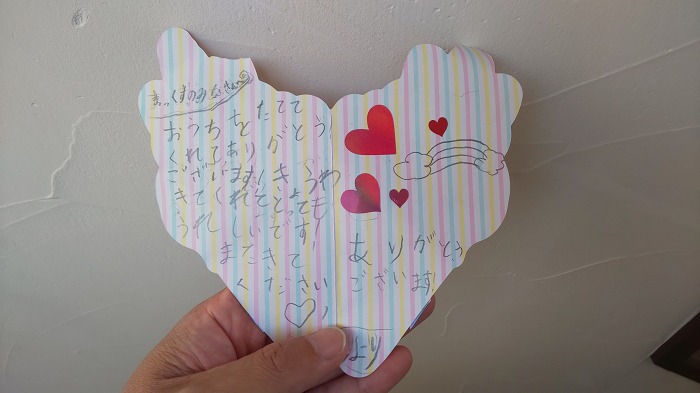 まっくすのみなさんへ
おうちをたてて
くれてありがとう
ございます！きょうわ
きてくれてとっても
うれしいです！
またきて
ください
ありがとう
ございます！
より